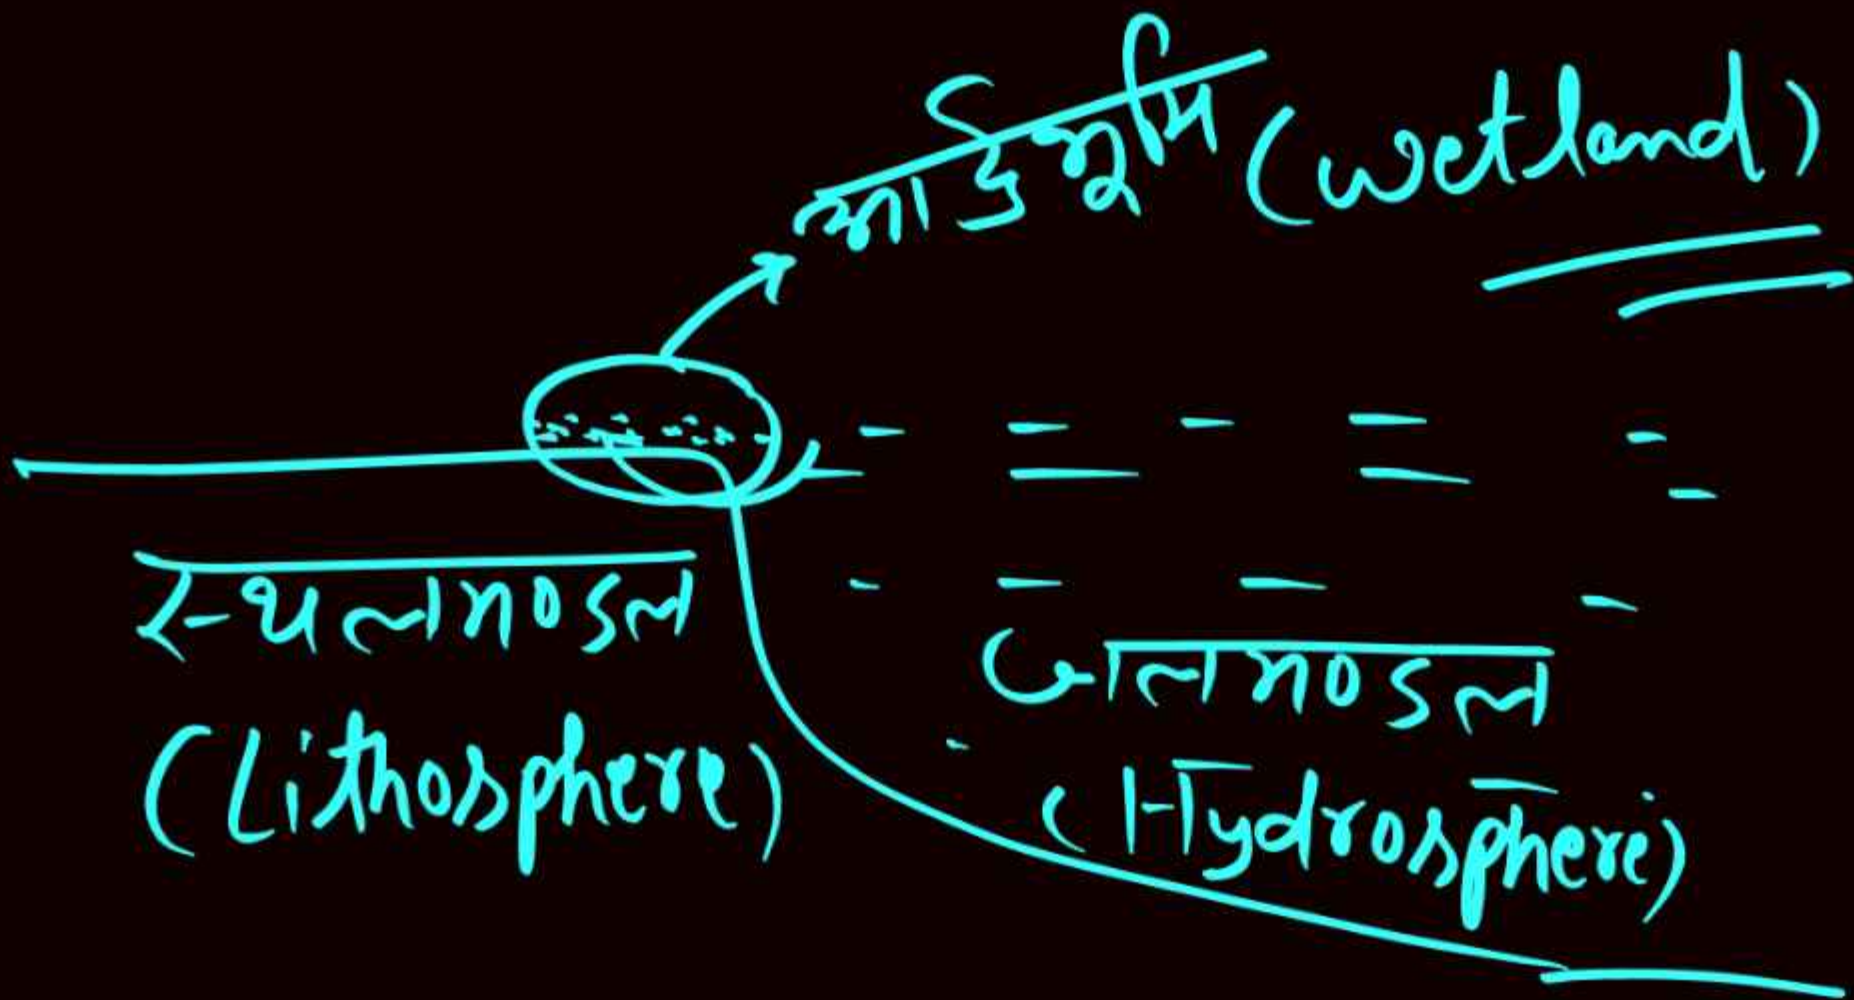 आर्द्रभूमि (wetland)
स्थलमण्डल
(Lithosphere)
जलमण्डल
(Hydrosphere)